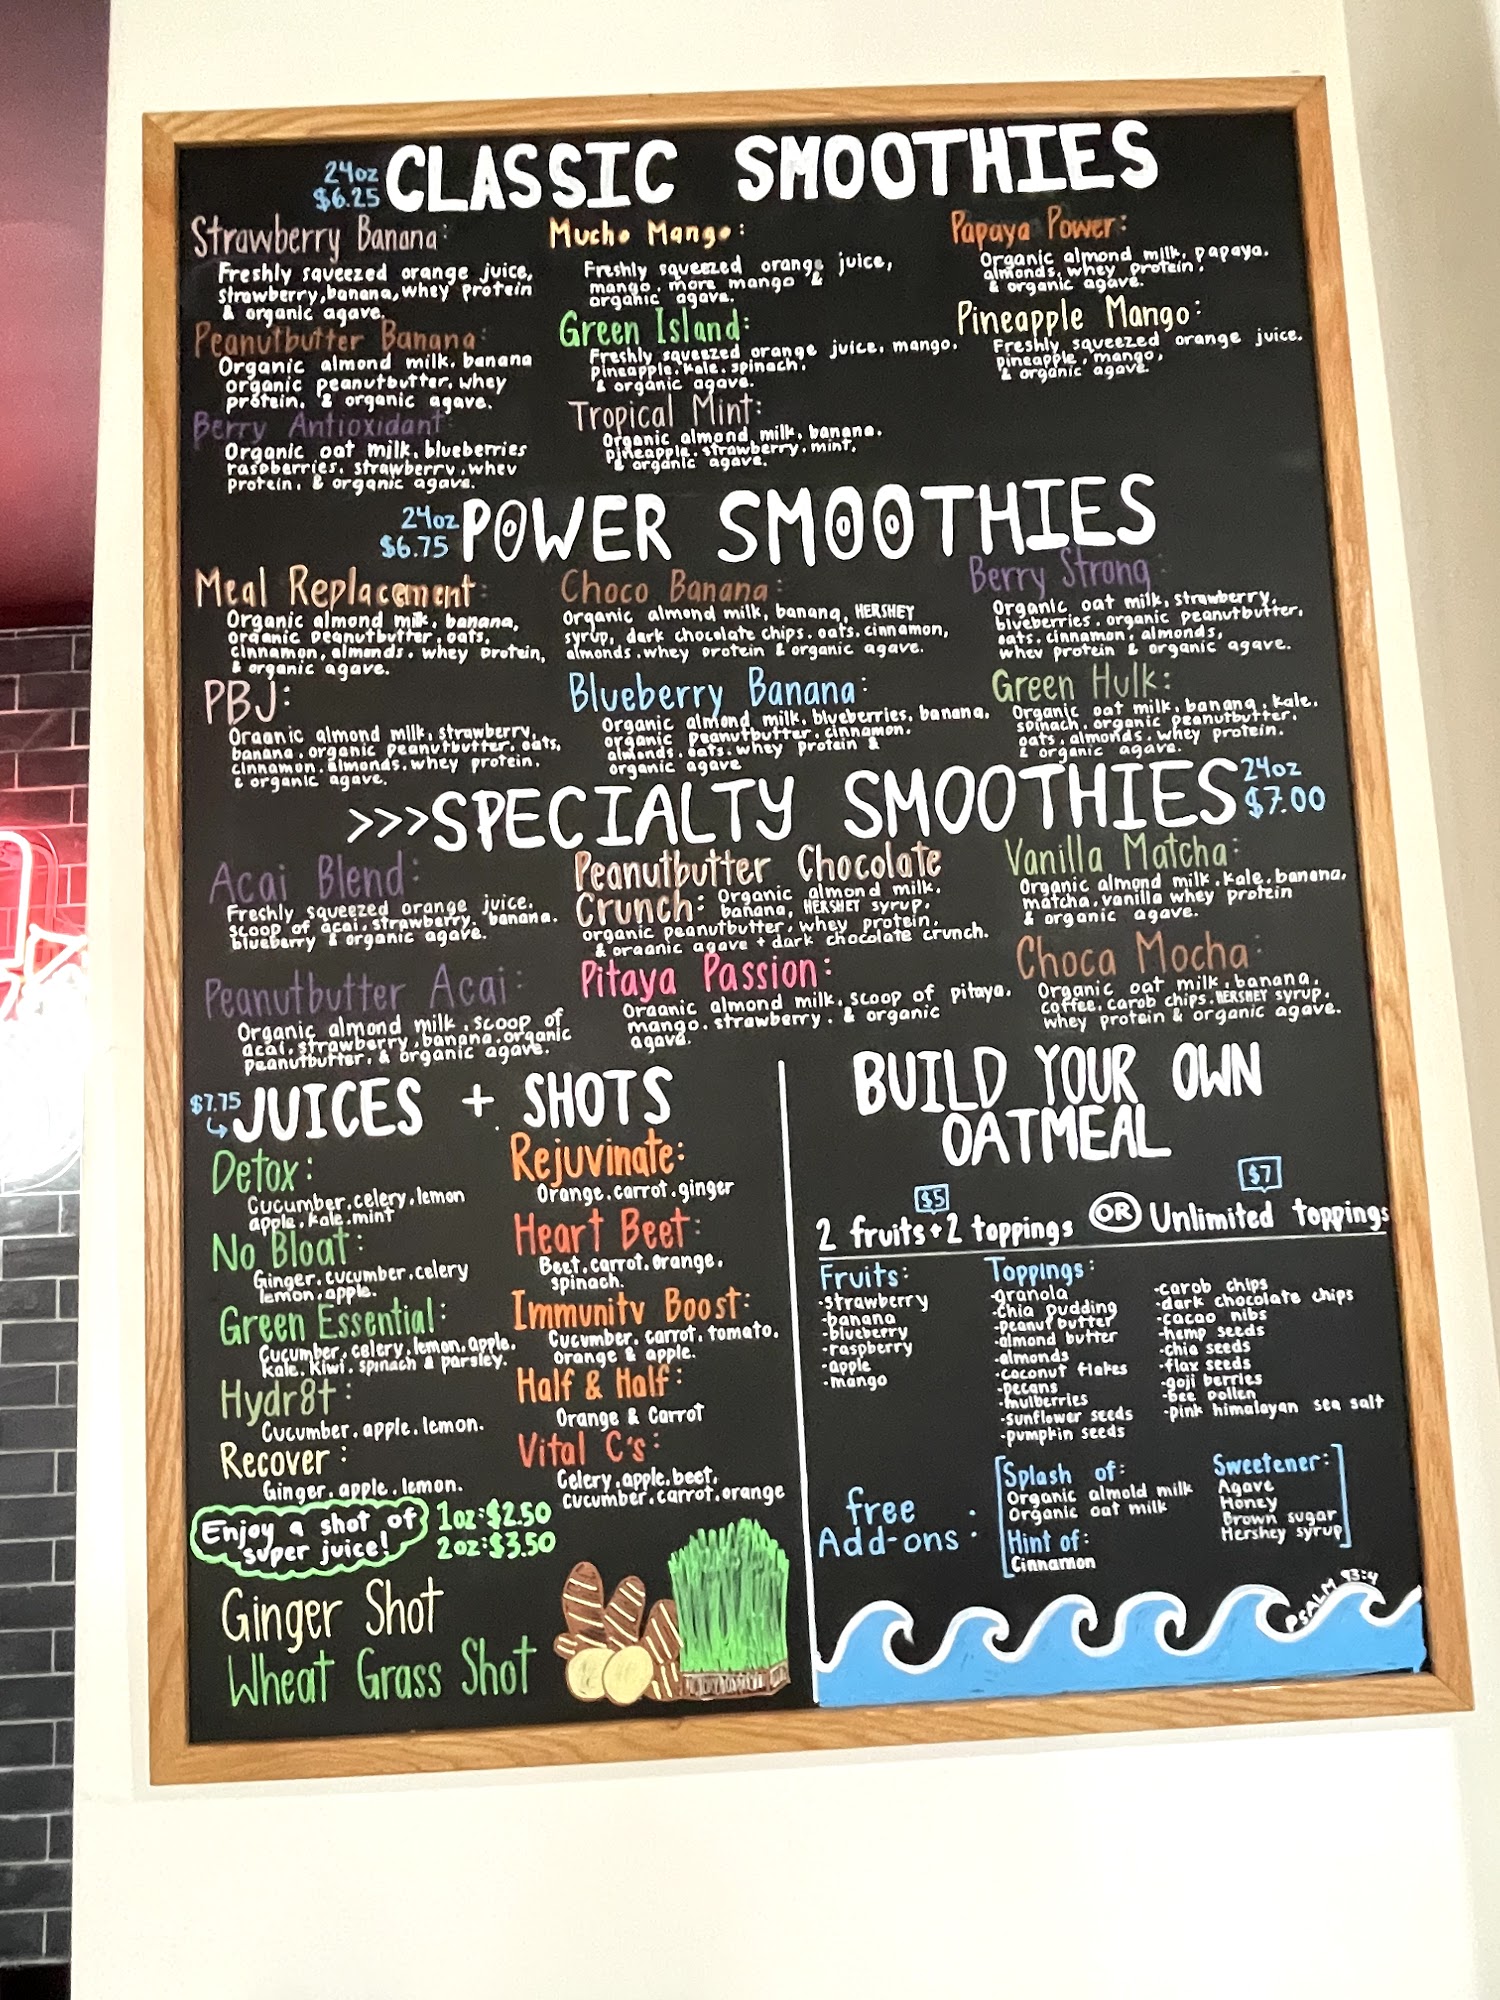 24oz
$6.25
CLASSIC SMOOTHIES
Strawberry Banana:
Freshly squeezed orange juice,
strawberry, banana, whey protein
& organic agave.
Peanutbutter Banana:
Organic almond milk, banana
organic peanutbutter, whey
protein, & organic agave.
Berry Antioxidant:
Organic oat milk, blueberries
raspberries, strawberry, whey
protein, & organic agave.
Mucho Mango:
Freshly squeezed orange juice,
mango, more mango &
organic agave.
Green Island:
Freshly squeezed orange juice, mango,
pineapple, kale, spinach,
& organic agave.
Tropical Mint:
Organic almond milk, banana,
pineapple, strawberry, mint,
& organic agave.
Papaya Power:
Organic almond milk, papaya,
almonds, whey protein,
& organic agave.
Pineapple Mango:
Freshly squeezed orange juice,
pineapple, mango,
& organic agave.
24oz
$6.75
POWER SMOOTHIES
Meal Replacement:
Organic almond milk, banana,
organic peanutbutter, oats,
cinnamon, almonds, whey protein,
& organic agave.
PBJ:
Organic almond milk, strawberry,
banana, organic peanutbutter, oats,
cinnamon, almonds, whey protein,
& organic agave.
Choco Banana:
Organic almond milk, banana, HERSHEY
syrup, dark chocolate chips, oats, cinnamon,
almonds, whey protein & organic agave.
Blueberry Banana:
Organic almond milk, blueberries, banana,
organic peanutbutter, cinnamon,
almonds, oats, whey protein &
organic agave
Berry Strong:
Organic oat milk, strawberry,
blueberries, organic peanutbutter,
oats, cinnamon, almonds,
whey protein & organic agave.
Green Hulk:
Organic oat milk, banana, kale,
spinach, organic peanutbutter,
oats, almonds, whey protein,
& organic agave.
>>>SPECIALTY SMOOTHIES
24oz
$7.00
Acai Blend:
Freshly squeezed orange juice,
scoop of acai, strawberry, banana,
blueberry & organic agave.
Peanutbutter Acai:
Organic almond milk, scoop of
acai, strawberry, banana, organic
peanutbutter, & organic agave.
Peanutbutter Chocolate
Crunch: Organic almond milk,
banana, HERSHEY syrup,
organic peanutbutter, whey protein,
& organic agave + dark chocolate crunch.
Pitaya Passion:
Organic almond milk, scoop of pitaya,
mango, strawberry, & organic
agave.
Vanilla Matcha:
Organic almond milk, kale, banana,
matcha, vanilla whey protein
& organic agave.
Choca Mocha:
Organic oat milk, banana,
coffee, carob chips, HERSHEY syrup,
whey protein & organic agave.
$7.75
JUICES + SHOTS
Detox:
Cucumber, celery, lemon
apple, kale, mint
No Bloat:
Ginger, cucumber, celery
lemon, apple.
Green Essential:
Cucumber, celery, lemon, apple,
kale, kiwi, spinach & parsley.
Hydr8t:
Cucumber, apple, lemon.
Recover:
Ginger, apple, lemon.
Rejuvinate:
Orange, carrot, ginger
Heart Beet:
Beet, carrot, orange,
spinach.
Immunity Boost:
Cucumber, carrot, tomato,
orange & apple.
Half & Half:
Orange & Carrot
Vital C's:
Celery, apple, beet,
cucumber, carrot, orange
Enjoy a shot of
super juice!
1oz:$2.50
2oz:$3.50
Ginger Shot
Wheat Grass Shot
BUILD YOUR OWN
OATMEAL
$5
$7
2 fruits + 2 toppings OR Unlimited toppings
Fruits:
-strawberry
-banana
-blueberry
-raspberry
-apple
-mango
Toppings:
-granola
-chia pudding
-peanut butter
-almond butter
-almonds
-coconut flakes
-pecans
-mulberries
-sunflower seeds
-pumpkin seeds
-carob chips
-dark chocolate chips
-cacao nibs
-hemp seeds
-chia seeds
-flax seeds
-goji berries
-bee pollen
-pink himalayan sea salt
free
Add-ons:
Splash of:
Organic almold milk
Organic oat milk
Hint of:
Cinnamon
Sweetener:
Agave
Honey
Brown sugar
Hershey syrup
PSALM 93:4